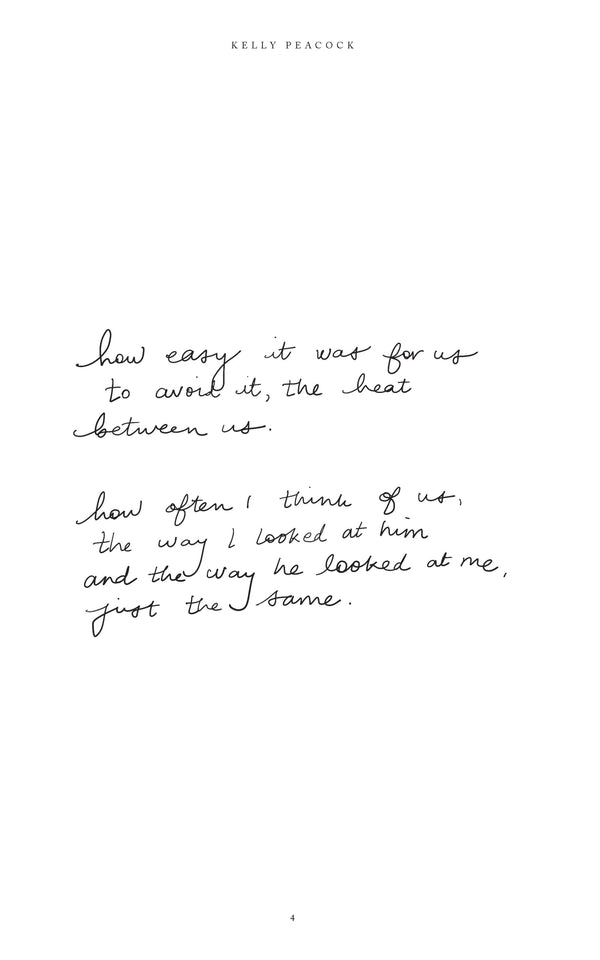 KELLY PEACOCK
how easy it was for us
to avoid it, the heat
between us.
how often I think of us,
the way I looked at him
and the way he looked at me,
just the same.
4